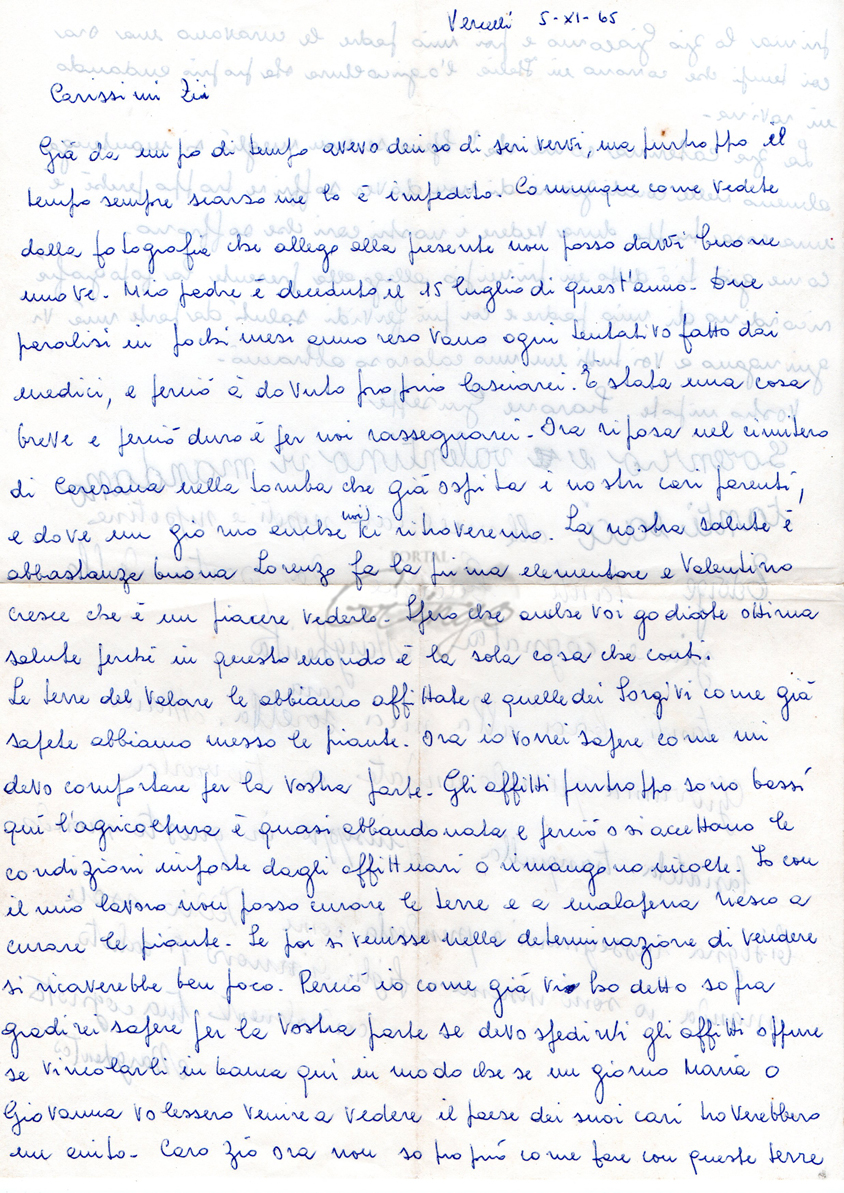 Vercelli 5-XI-65
Carissimi Zii
Già da un po di tempo avevo deciso di scrivervi, ma purtroppo il
tempo sempre scarso me lo è impedito. Comunque come vedete
dalla fotografia che allego alla presente non posso darvi buone
nuove. Mio padre è deceduto il 15 luglio di quest'anno. Due
paralisi in pochi mesi anno reso vano ogni tentativo fatto dai
medici, e perciò à dovuto proprio lasciarci. È stata una cosa
breve e perciò duro è per noi rassegnarci. Ora riposa nel cimitero
di Caresana nella tomba che già ospita i nostri cari parenti,
e dove un giorno anche (noi) ci ritroveremo. La nostra salute è
abbastanza buona Lorenzo fa la prima elementare e Valentino
cresce che è un piacere vederlo. Spero che anche voi godiate ottima
salute perché in questo mondo è la sola cosa che conti.
Le terre del Valare le abbiamo affittate e quelle dei Sorgivi come già
sapete abbiamo messo le piante. Ora io vorrei sapere come mi
devo comportare per la vostra parte. Gli affitti purtroppo sono bassi
qui l'agricoltura è quasi abbandonata e perciò o si accettano le
condizioni imposte dagli affittuari o rimangono incolte. Io con
il mio lavoro non posso curare le terre e a malapena riesco a
curare le piante. Se poi si venisse nella determinazione di vendere
si ricaverebbe ben poco. Perciò io come già vi ho detto sopra
gradirei sapere per la vostra parte se devo spedirvi gli affitti oppure
se vincolarli in banca qui in modo che se un giorno Maria o
Giovanna volessero venire a vedere il paese dei suoi cari troverebbero
un aiuto. Caro Zio ora non so proprio come fare con queste terre